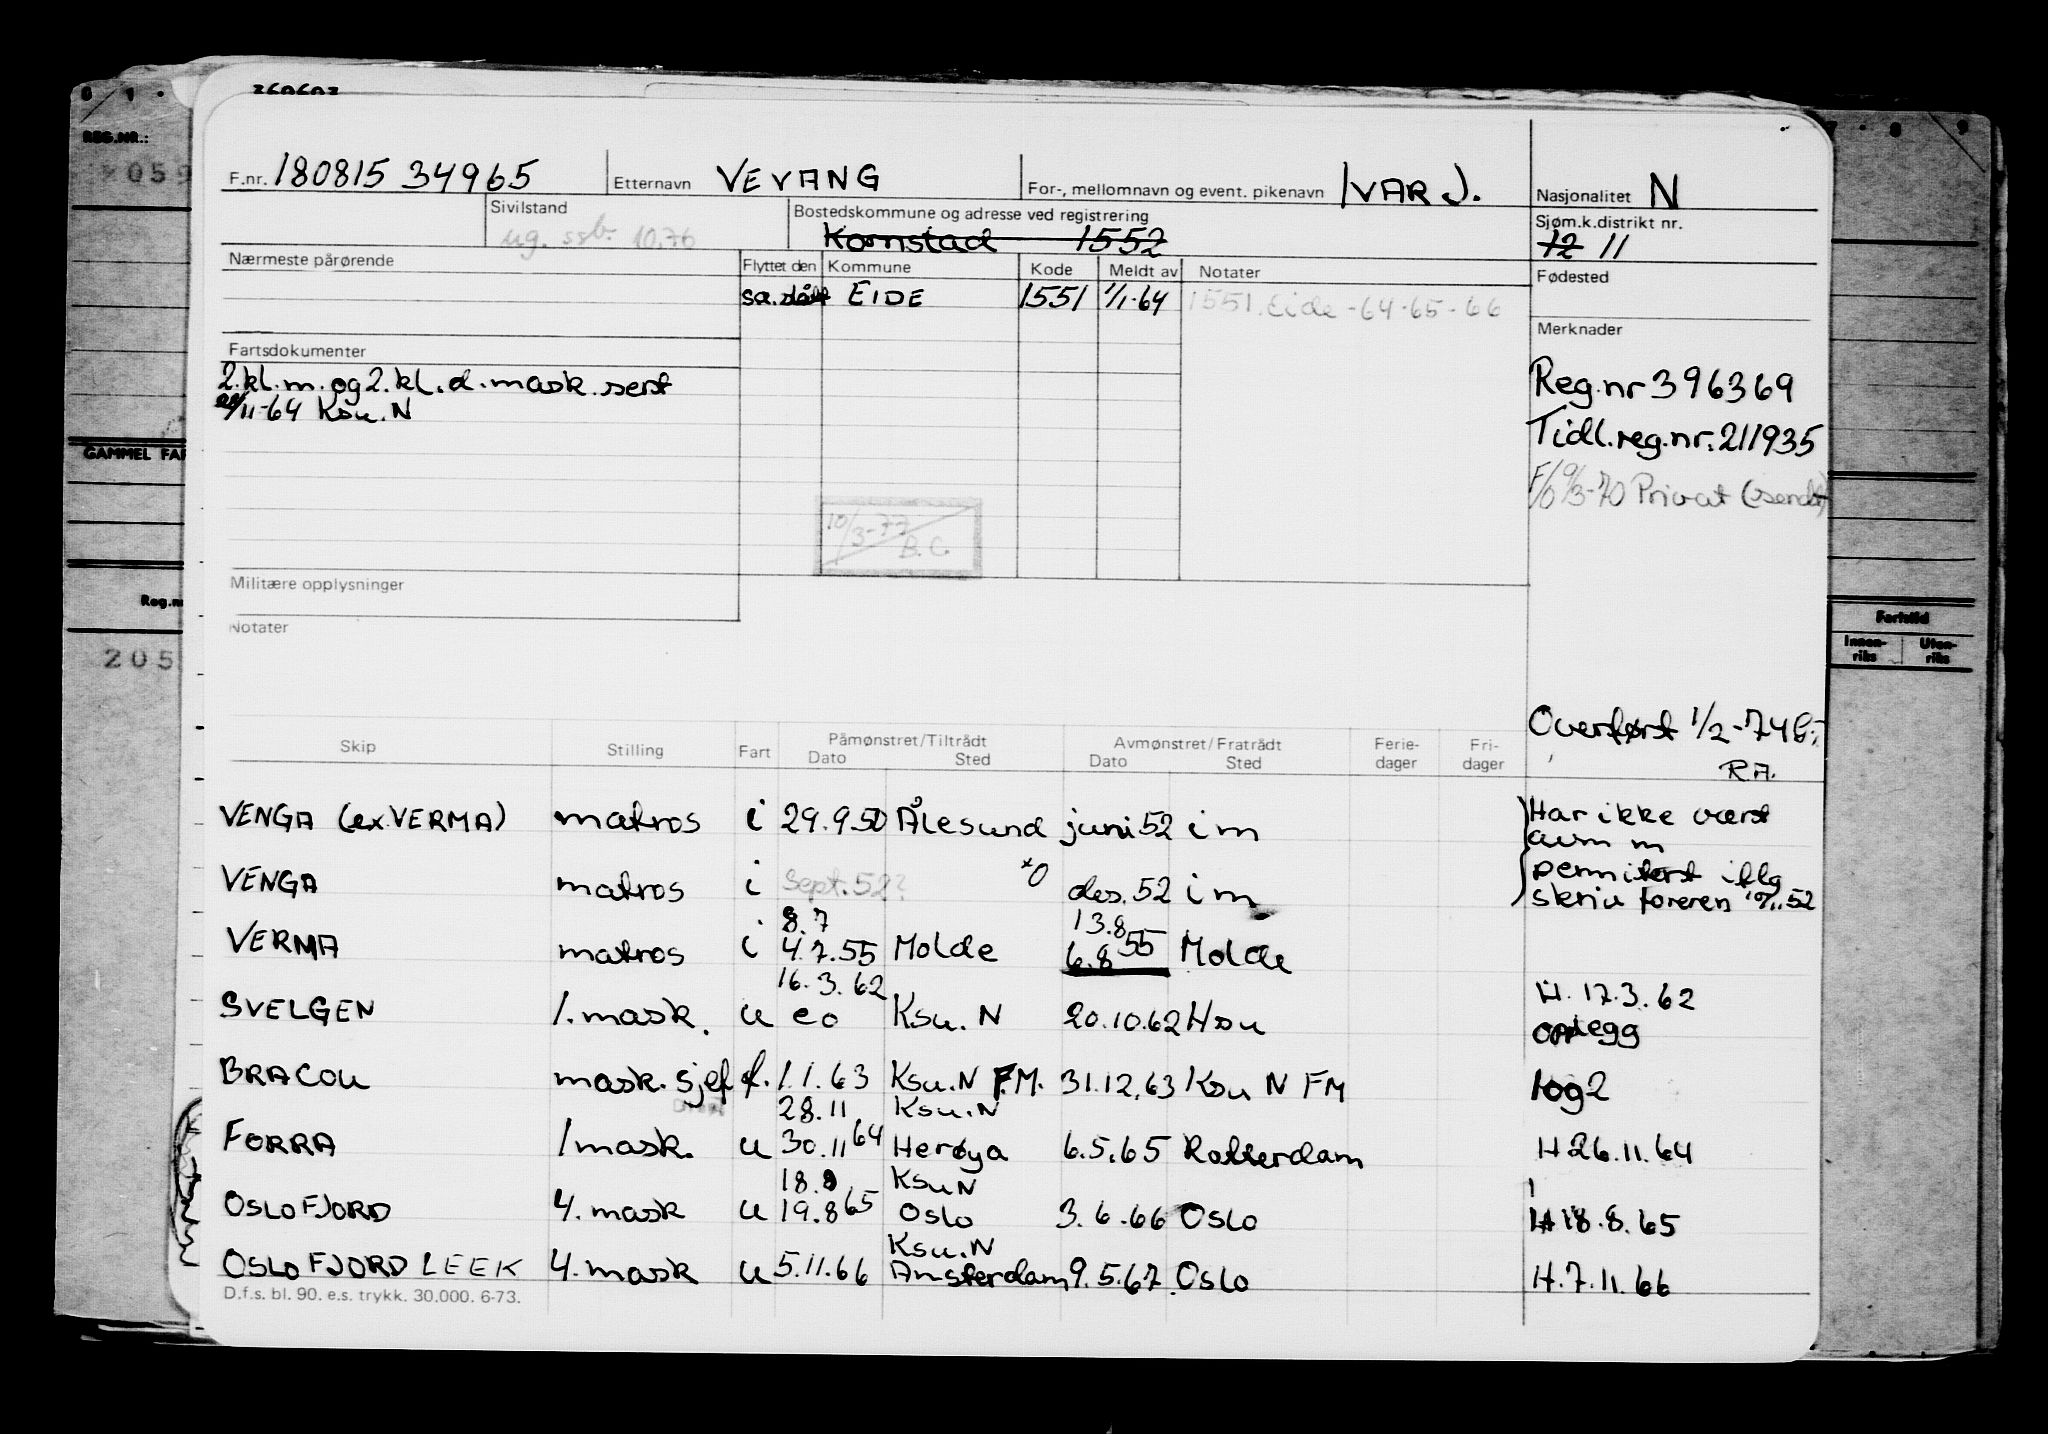 REG.NR.:
GAMMEL FAR
205
Fartstid
Innen-riks Uten-riks
F.nr. 180815 34965 Etternavn VEVANG For-, mellomnavn og event. pikenavn IVAR J. Nasjonalitet N
Sivilstand ug. ssb. 10.76 Bostedskommune og adresse ved registrering Kornstad 1552 Sjøm.k.distrikt nr. 12 11
Nærmeste pårørende Flyttet den Kommune Kode Meldt av Notater Fødested
EIDE 1551 1/1-64 1551. Eide -64-65-66
Merknader
Fartsdokumenter
2.kl.m.og 2.kl.d.mask.sert
/11-64 Ksu.N
Reg.nr 396369
Tidl.reg.nr. 211935
3-70 Privat (sendt)
10/3-77
B.C.
Militære opplysninger
Notater
Overført 1/2-74
R.A.
Skip Stilling Fart Påmønstret/Tiltrådt Dato Sted Avmønstret/Fratrådt Dato Sted Ferie-dager Fri-dager
VENGA (ex.VERMA) matros i 29.9.50 Ålesund juni 52 i m Har ikke vært
avm m
VENGA matros i Sept. 52? *0 des. 52 i m permitert iflg
skriv foreren 52
8.7 13.8
VERMA matros i 4.7.55 Molde 6.8 55 Molde
16.3.62
SVELGEN 1.mask. u eo Ksu. N 20.10.62 Hsu H. 17.3.62
opplegg
BRACOU mask.sjef f. 1.1.63 Ksu.N F.M. 31.12.63 Ksu N FM log 2
28.11 Ksu.N
FORRA 1 mask. u 30.11 64 Herøya 6.5.65 Rotterdam H 26.11.64
18.8 Ksu N
OSLOFJORD 4. mask u 19.8 65 Oslo 3.6.66 Oslo H 18.8.65
Ksu.N
OSLOFJORD LEEK 4. mask u 5.11.66 Amsterdam 9.5.67 Oslo H.7.11.66
D.f.s. bl. 90. e.s. trykk. 30.000. 6-73.